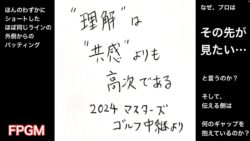 ほんのわずかに
ショートした
ほぼ同じラインの
外側からの
パッティング
"理解"は
"共感"よりも
高次である
2024 マスターズ
ゴルフ中継より
なぜ、プロは
その先が
見たい…
と言うのか？
そして、
伝える側は
何のギャップを
抱えているのか？
FPGM